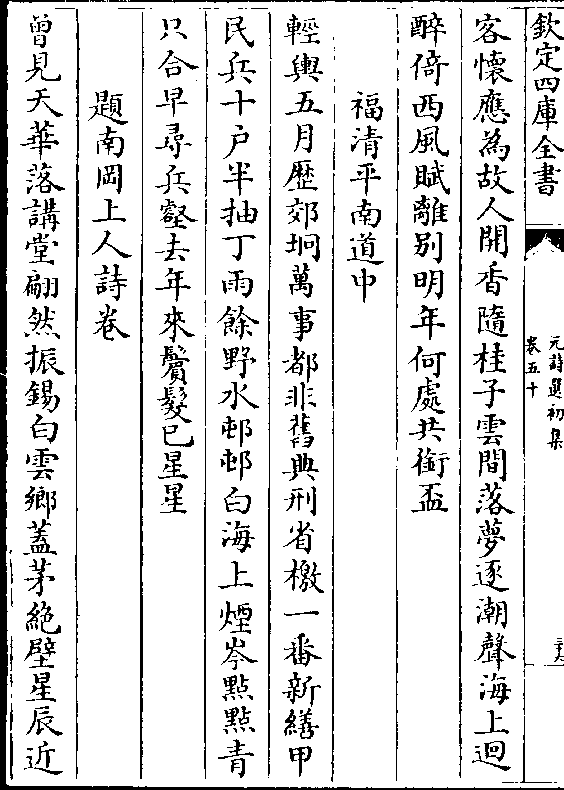 欽定四庫全書
元詩選初集
卷五十
客懷應為故人開香隨桂子雲間落夢逐潮聲海上迴
醉倚西風賦離别明年何處共銜盃
福清平南道中
輕輿五月歷郊坰萬事都非舊典刑省檄一番新繕甲
民兵十户半抽丁雨餘野水邨邨白海上煙岑點點青
只合早尋丘壑去年來鬢髮已星星
題南岡上人詩卷
曾見天華落講堂翩然振錫白雲鄉蓋茅絶壁星辰近